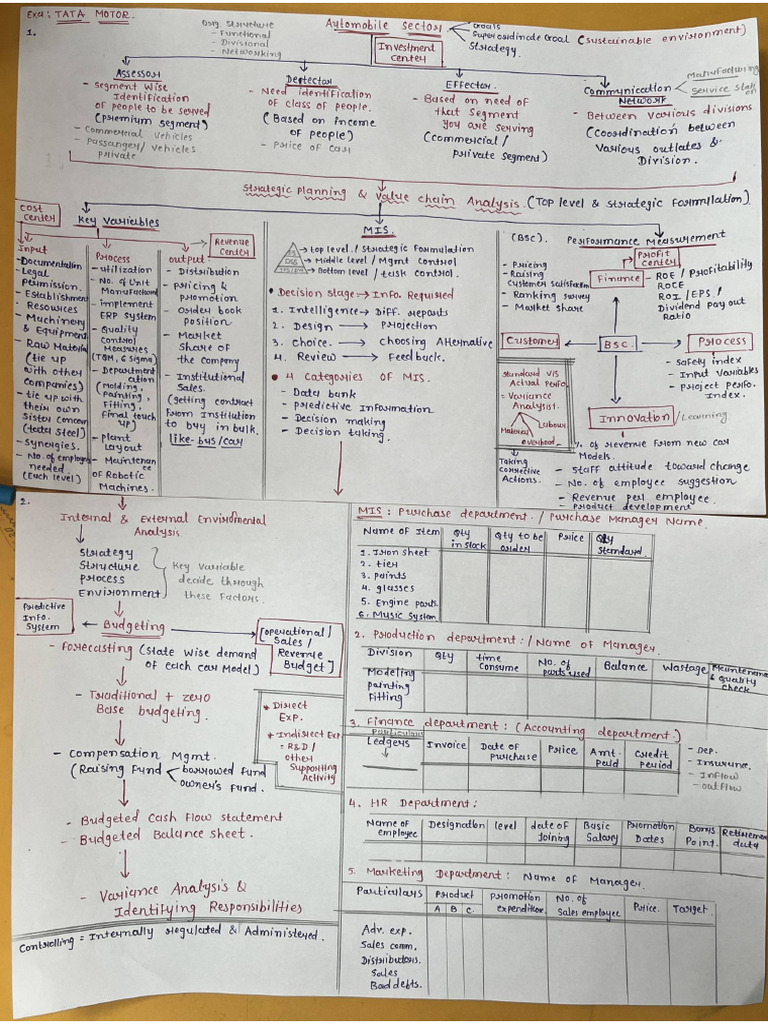 Exa: TATA MOTOR.
1.
Org. Structure
- Functional
- Divisional
- Networking
Automobile Sector
Goals
Superordinate Goal (sustainable environment)
Strategy.
Investment
center
Assessor
- Segment wise
Identification
of people to be served
(premium segment)
- Commercial vehicles
- Passanger/vehicles
private
Detector
- Need identification
of class of people.
(Based on income
of people)
- Price of car
Effector.
- Based on need of
that Segment
you are serving
(commercial /
private segment)
Communication
Network
Manufacturing
Service
- Between various divisions
(coordination between
various outlates &
Division.
Strategic planning & value chain Analysis. (Top level & strategic Formulation)
Cost
center
Key variables
Revenue
Center
Input
- Documentation
- Legal
Permission.
- Establishment
Resources
- Machinery
& Equipment
- Raw Material
(tie up
with other
companies)
- tie up with
their own
Sister concern
(tata steel)
- Synergies.
- No. of employee
needed.
(Each level)
Process
- utilization
- No. of Unit
Manufactured
- implement
ERP system
- Quality
control
Measures
(TQM, 6 sigma)
- Department
ation
(Molding,
Painting,
Fitting,
Final touch
up)
- Plant
Layout
- Maintenan
ce
of Robotic
Machines.
output
- Distribution
- pricing &
promotion
- Order book
position
- Market
Share of
the company
- Institutional
Sales.
(getting contract
From Institution
to buy in bulk.
like- bus/car
MIS.
DSS
→ top level / Strategic Formulation
→ Middle level / Mgmt control
→ Bottom level / task control.
• Decision stage → Info. Required
1. Intelligence → Diff. reports
2. Design → projection
3. Choice. → Choosing Alternative
4. Review → Feedback.
• 4 Categories of MIS.
- Data bank
- predictive Information
- Decision making
- Decision taking.
(BSC). Performance Measurement
Profit
center
- Pricing
- Raising
customer satisfaction
- Ranking survey
- Market share
Finance
- ROE / Profitability
ROCE
ROI / EPS /
Dividend pay out
Ratio
Customer
BSC.
Process
- Safety index
- Input variables
- project perfo.
Index.
Standard v/s
Actual perfo.
= Variance
Analysis.
Material
Labour
overhead
Taking
corrective
Actions.
Innovation /Learning
% of revenue from new car
Models.
- Staff attitude toward change
- No. of employee suggestion
- Revenue per employee.
- product development
2.
Internal & External Enviromental
Analysis.
Strategy
Structure
process
Environment
Key variable
decide through
these Factors.
Predictive
Info.
System
Budgeting
[operational/
Sales /
Revenue
Budget]
- Forecasting (State wise demand
of each car Model)
- Traditional + zero
Base budgeting.
* Direct
Exp.
* Indirect Exp
= R&D /
other
Supporting
Activity
- Compensation Mgmt.
(Raising Fund
borrowed fund
owner's fund.
- Budgeted cash flow statement
- Budgeted Balance sheet.
- Variance Analysis &
Identifying Responsibilities
Controlling = Internally regulated & Administered.
MIS: Purchase department. / Purchase Manager Name.
Name of Item
Qty
in stock
Qty to be
order
Price
Qty
Standard.
1. Iron sheet
2. tier
3. paints
4. glasses
5. Engine parts.
6. Music System
2. Production department: / Name of Manager.
Division
Qty
time
Consume
No. of
parts used
Balance
Wastage
Maintenance
& Quality
check
Modeling
painting
Fitting
3. Finance department: (Accounting department.)
Particulars
Ledgers
Invoice
Date of
purchase
Price
Amt.
Paid
Credit
period
- Dep.
- Insurance.
- Inflow
- outflow
4. HR Department:
Name of
employee
Designation
level
date of
Joining
Basic
Salary
Promotion
Dates
Bonus
Point.
Retirement
data
5. Marketing Department: Name of Manager.
Particulars
Product
A B C.
promotion
expenditure
No. of
Sales employee
Price.
Target.
Adv. exp.
Sales comm.
Distributors.
Sales
Bad debts.